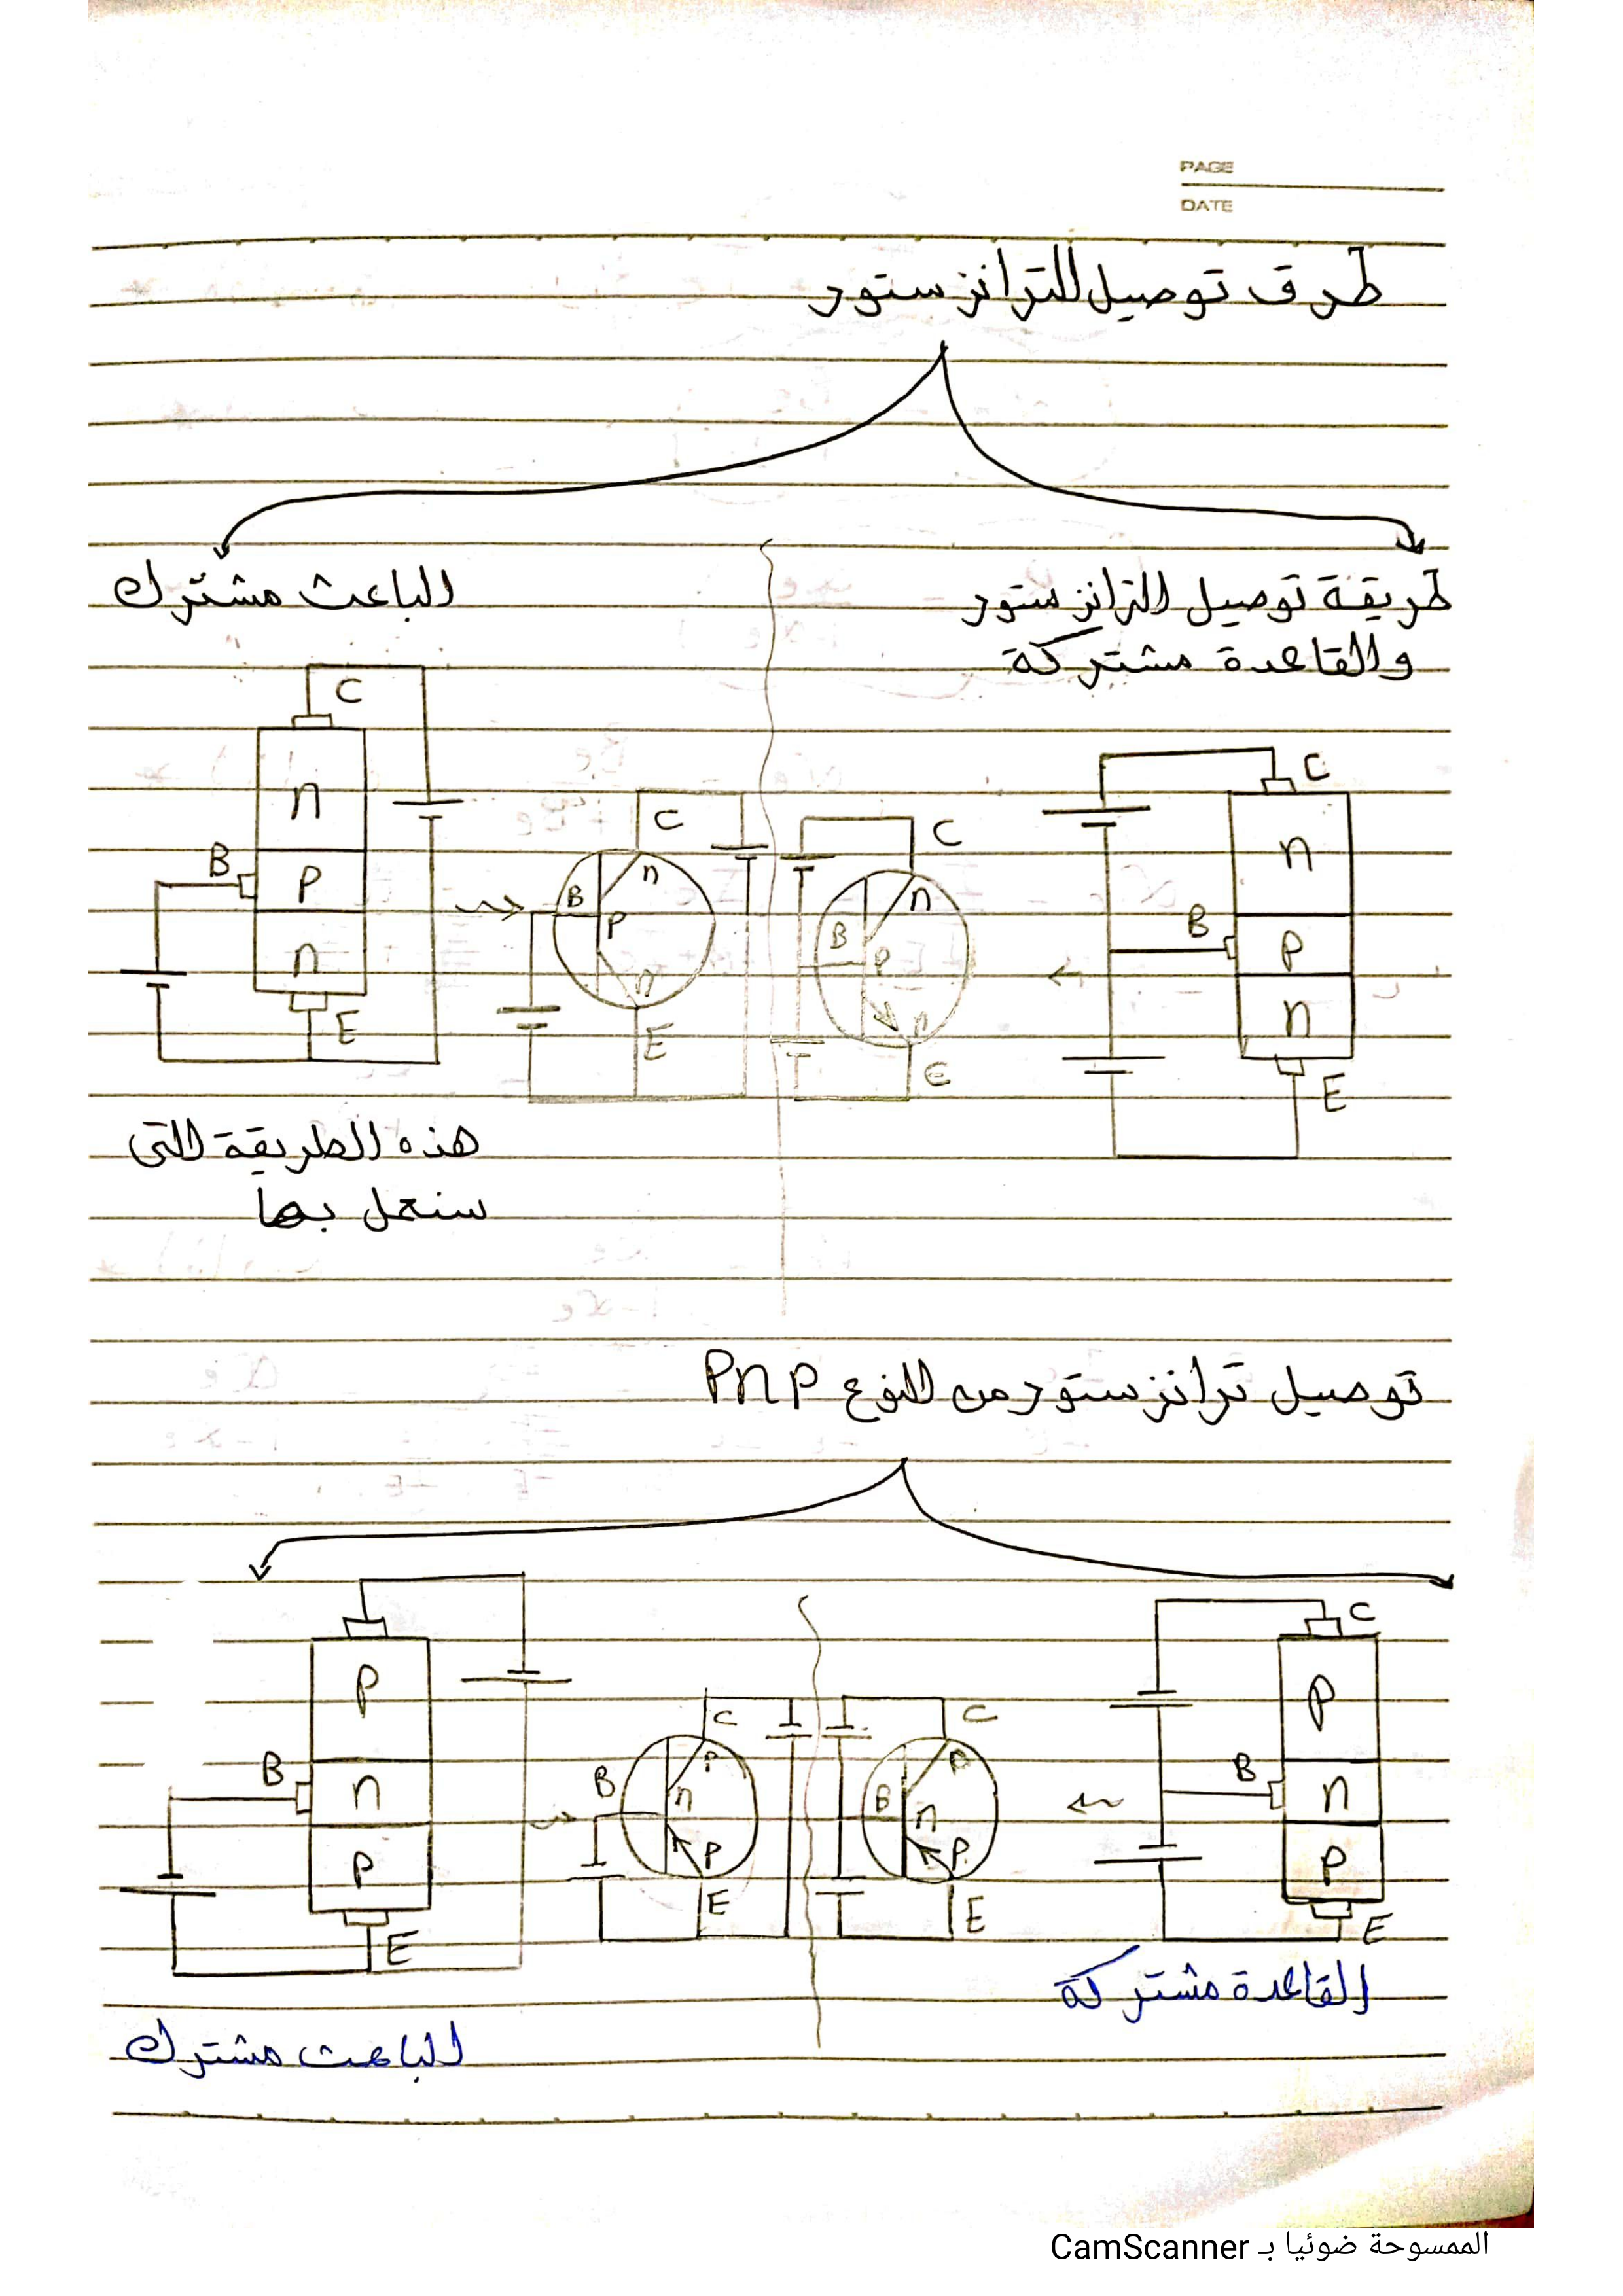 PAGE
DATE
طرق توصيل الترانزستور
طريقة توصيل الترانزستور
والقاعدة مشتركة
الباعث مشترك
C
n
B
p
n
E
C
n
B
p
n
E
C
n
B
p
n
E
C
n
B
p
n
E
هذه الطريقة التى
سنعمل بها
توصيل ترانزستور من النوع pnp
C
p
B
n
p
E
C
p
B
n
p
E
C
p
B
n
p
E
p
B
n
p
E
القاعدة مشتركة
الباعث مشترك
الممسوحة ضوئيا بـ CamScanner